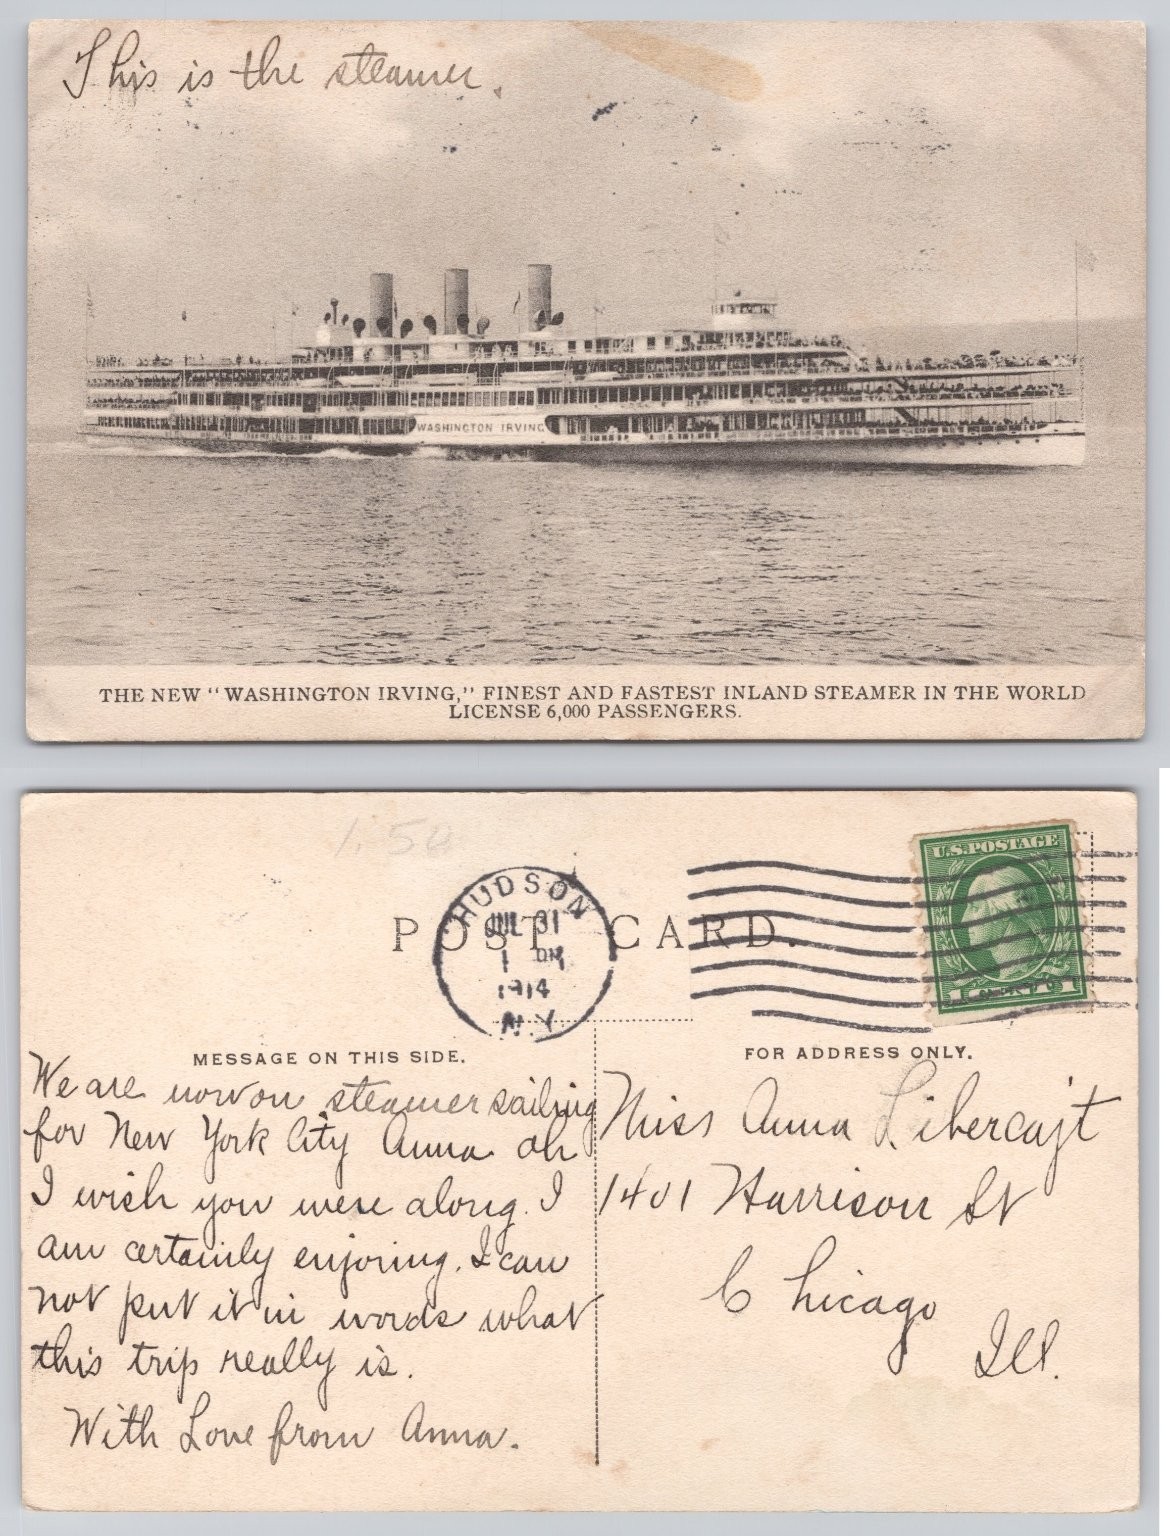 This is the steamer.
WASHINGTON IRVING
THE NEW "WASHINGTON IRVING," FINEST AND FASTEST INLAND STEAMER IN THE WORLD
LICENSE 6,000 PASSENGERS.
1.50
HUDSON
JUL 31
1 PM
1914
N.Y.
POST CARD.
U.S. POSTAGE
1
MESSAGE ON THIS SIDE.
FOR ADDRESS ONLY.
We are now on steamer sailing
for New York City Anna oh
I wish you were along. I
am certainly enjoring. I can
not put it in words what
this trip really is.
With Love from Anna.
Miss Anna
1401 Harrison St
Chicago
Ill.